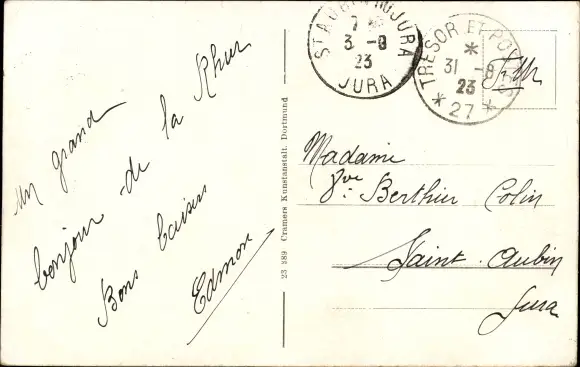 un grand
bonjour de la Rhur
Bons baisers
Edmon
23 989 Cramers Kunstanstalt, Dortmund
ST AUBIN DU JURA
7
3 - 9
23
JURA
TRESOR ET POSTES
31 - 8
23
* 27 *
F.M
Madame
Vve Berthier Colin
Saint-Aubin
Jura